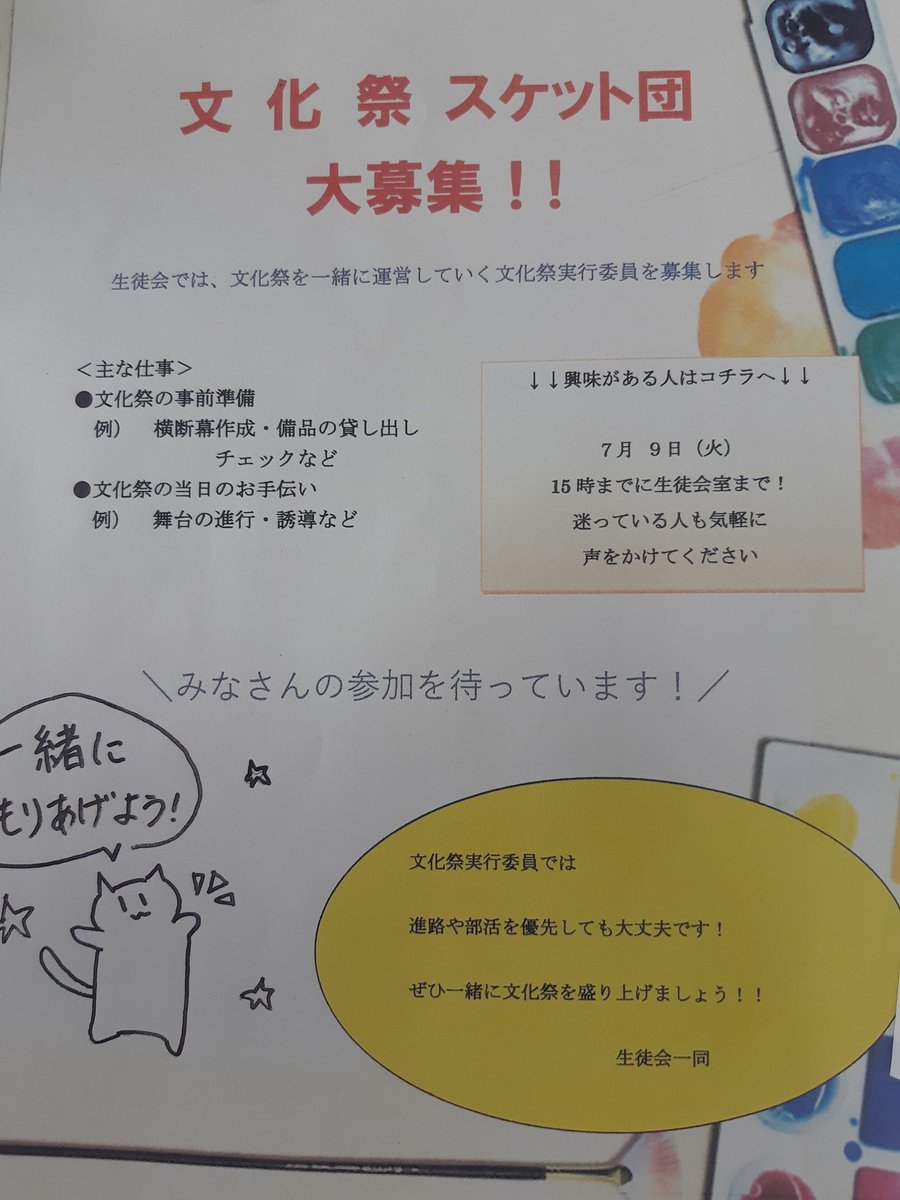 文化祭 スケット団
大募集！！
生徒会では、文化祭を一緒に運営していく文化祭実行委員を募集します
＜主な仕事＞
●文化祭の事前準備
例） 横断幕作成・備品の貸し出し
チェックなど
●文化祭の当日のお手伝い
例） 舞台の進行・誘導など
↓↓興味がある人はコチラへ↓↓
７月 ９日（火）
15時までに生徒会室まで！
迷っている人も気軽に
声をかけてください
＼みなさんの参加を待っています！／
一緒に
もりあげよう!
文化祭実行委員では
進路や部活を優先しても大丈夫です！
ぜひ一緒に文化祭を盛り上げましょう！！
生徒会一同